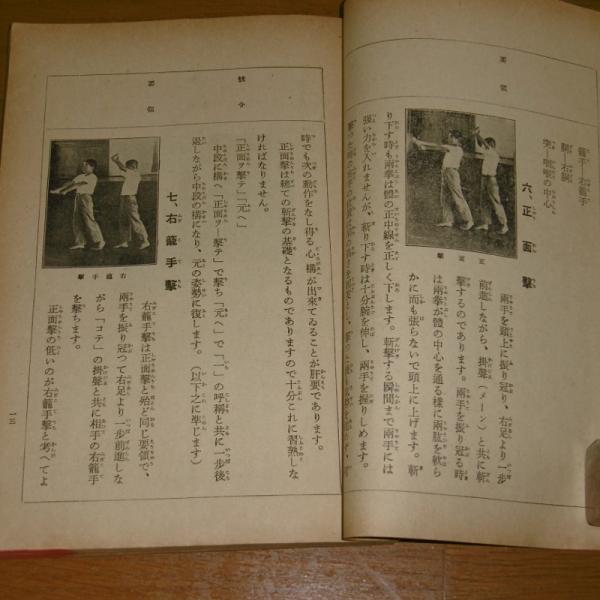 要領
籠手、右籠手
胴、右胴
突、咽喉の中心。
六正面擊
正面擊
兩手を頭上に振り冠り、右足より一步
前進しながら、掛聲(メーン)と共に斬
擊するのであります。兩手を振り冠る時
は兩拳が體の中心を通る樣に兩肱を軟ら
かに而も張らないで頭上に上げます。斬
り下す時も兩拳は體の正中線を正しく下します。斬擊する瞬間まで兩手には
強い力を入れませんが、斬り下す時は十分腕を伸し、兩手を握りしめます。
號令
要領
時でも次の動作をなし得る心構が出來てゐることが肝要であります。
正面擊は總ての斬擊の基礎となるものでありますので十分これに習熟しな
ければなりません。
「正面ヲ擊テ」「元へ」
中段に構へ「正面ヲー擊テ」で擊ち「元へ」で「二」の呼稱と共に一步後
退しながら中段の構になり、元の姿勢に復します。(以下之に準じます)
七、右籠手擊
右籠手擊
右籠手擊は正面擊と殆ど同じ要領で、
兩手を振り冠つて右足より一步前進しな
がら「コテ」の掛聲と共に相手の右籠手
を擊ちます。
正面擊の低いのが右籠手擊と考へてよ
一三